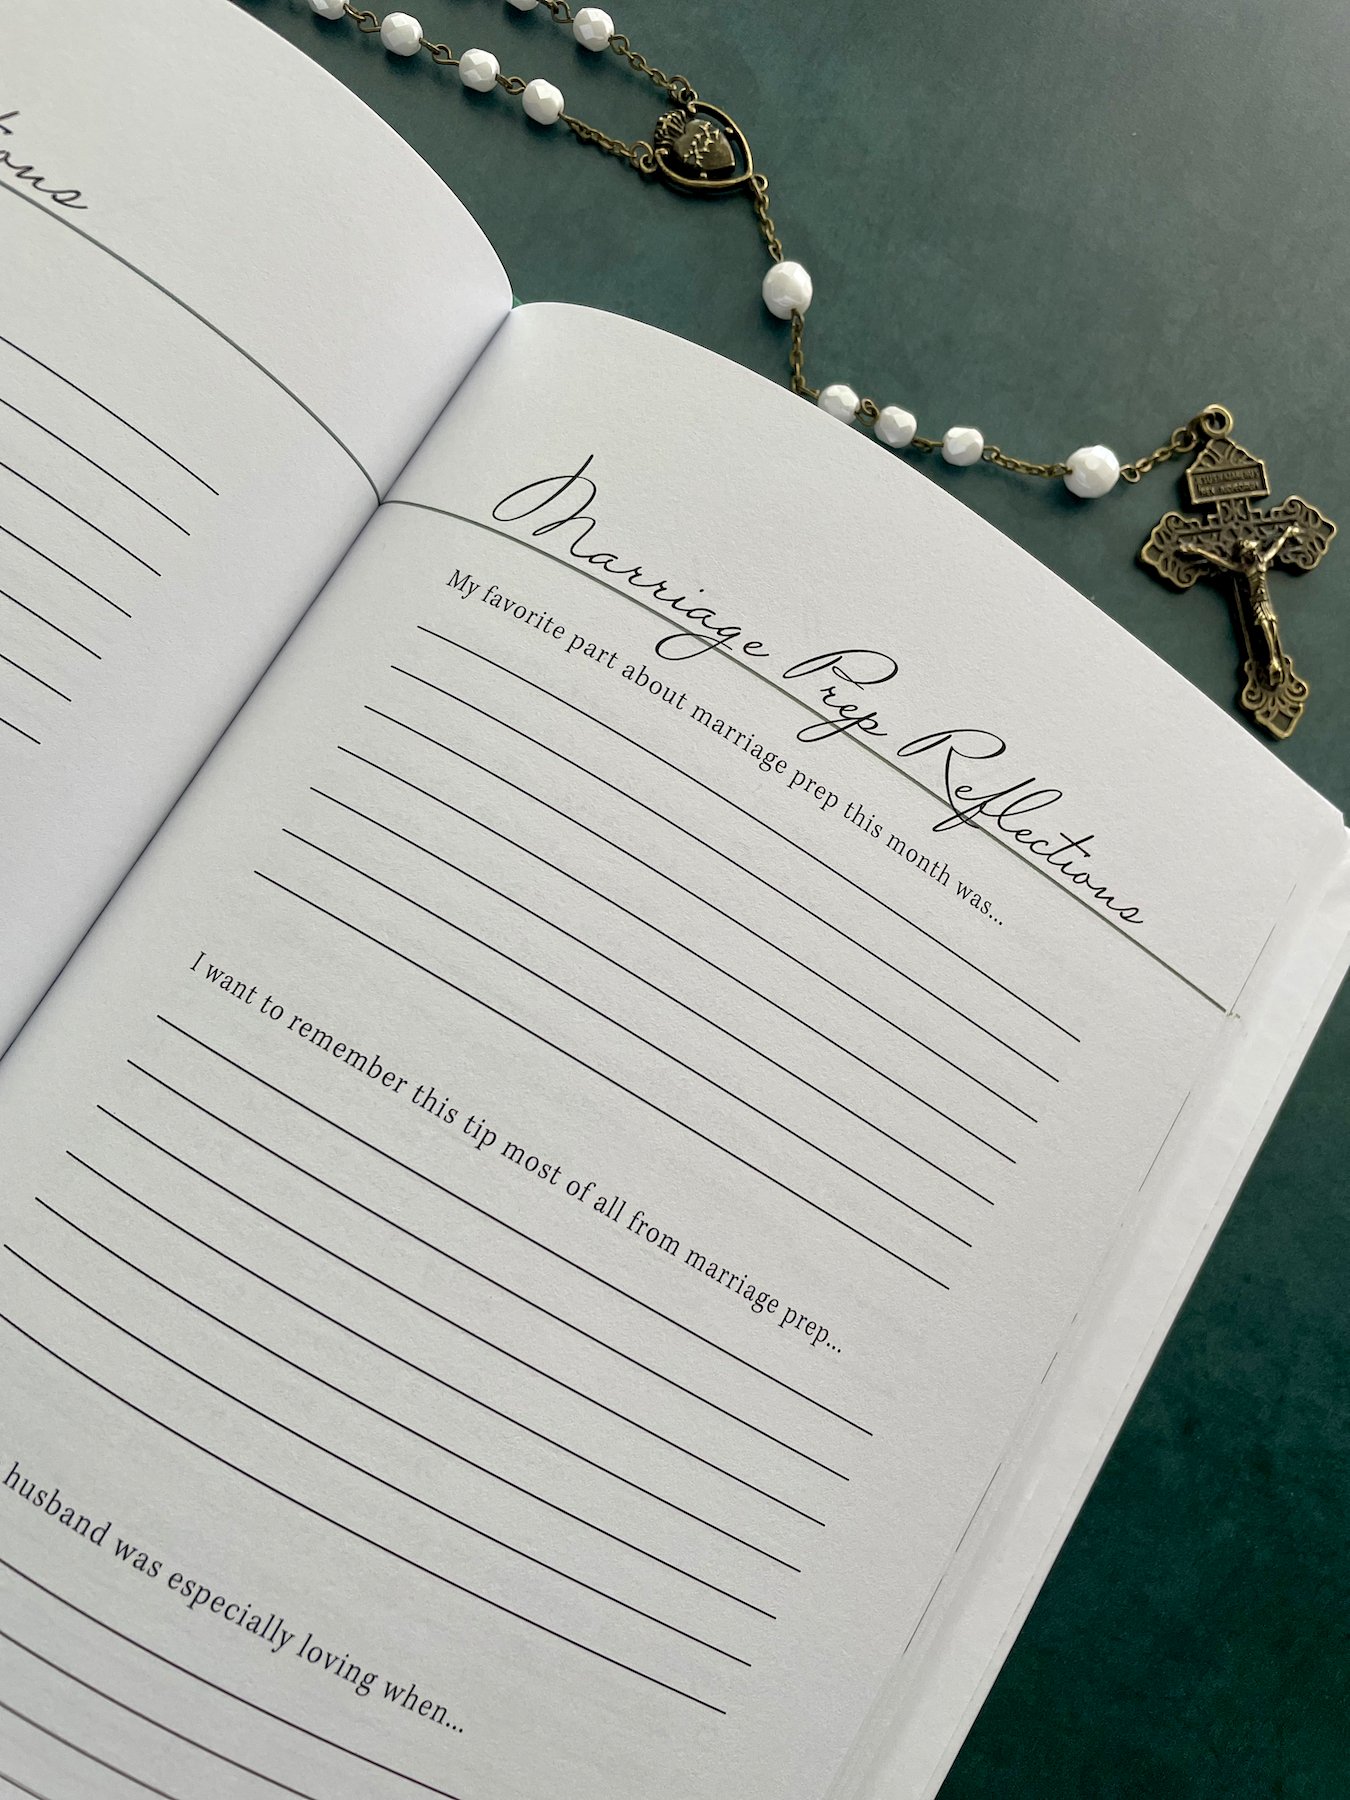 Marriage Prep Reflections
My favorite part about marriage prep this month was...
I want to remember this tip most of all from marriage prep...
husband was especially loving when...